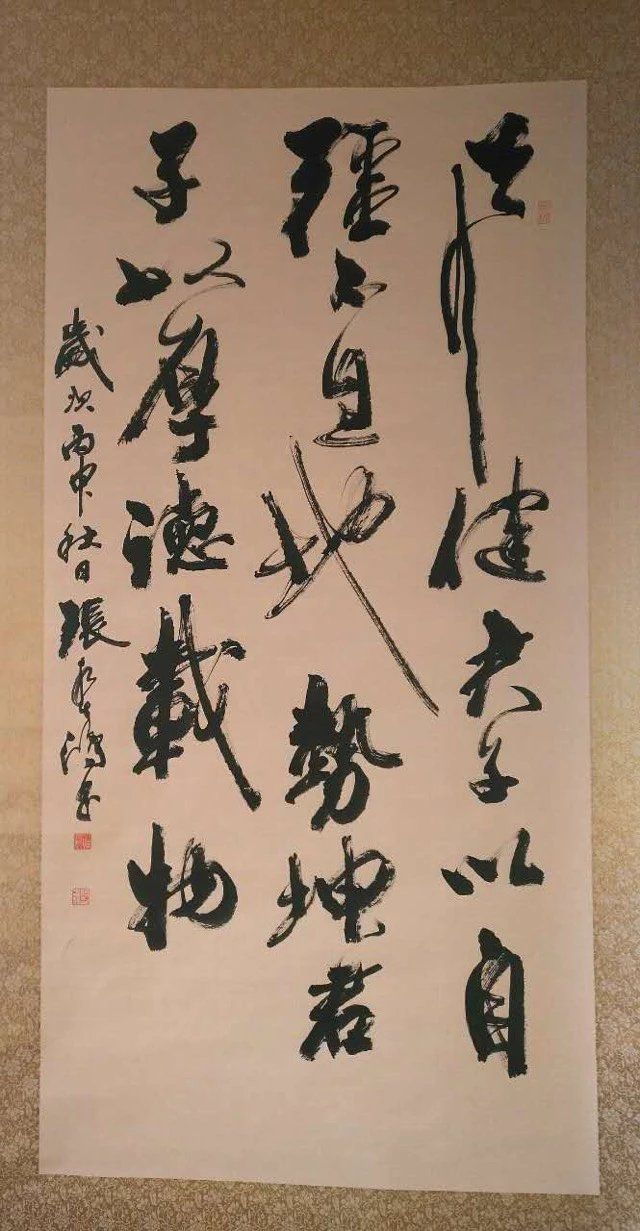 天行健君子以自
強不息地勢坤君
子以厚德載物
歲次丙申秋日張永鴻書